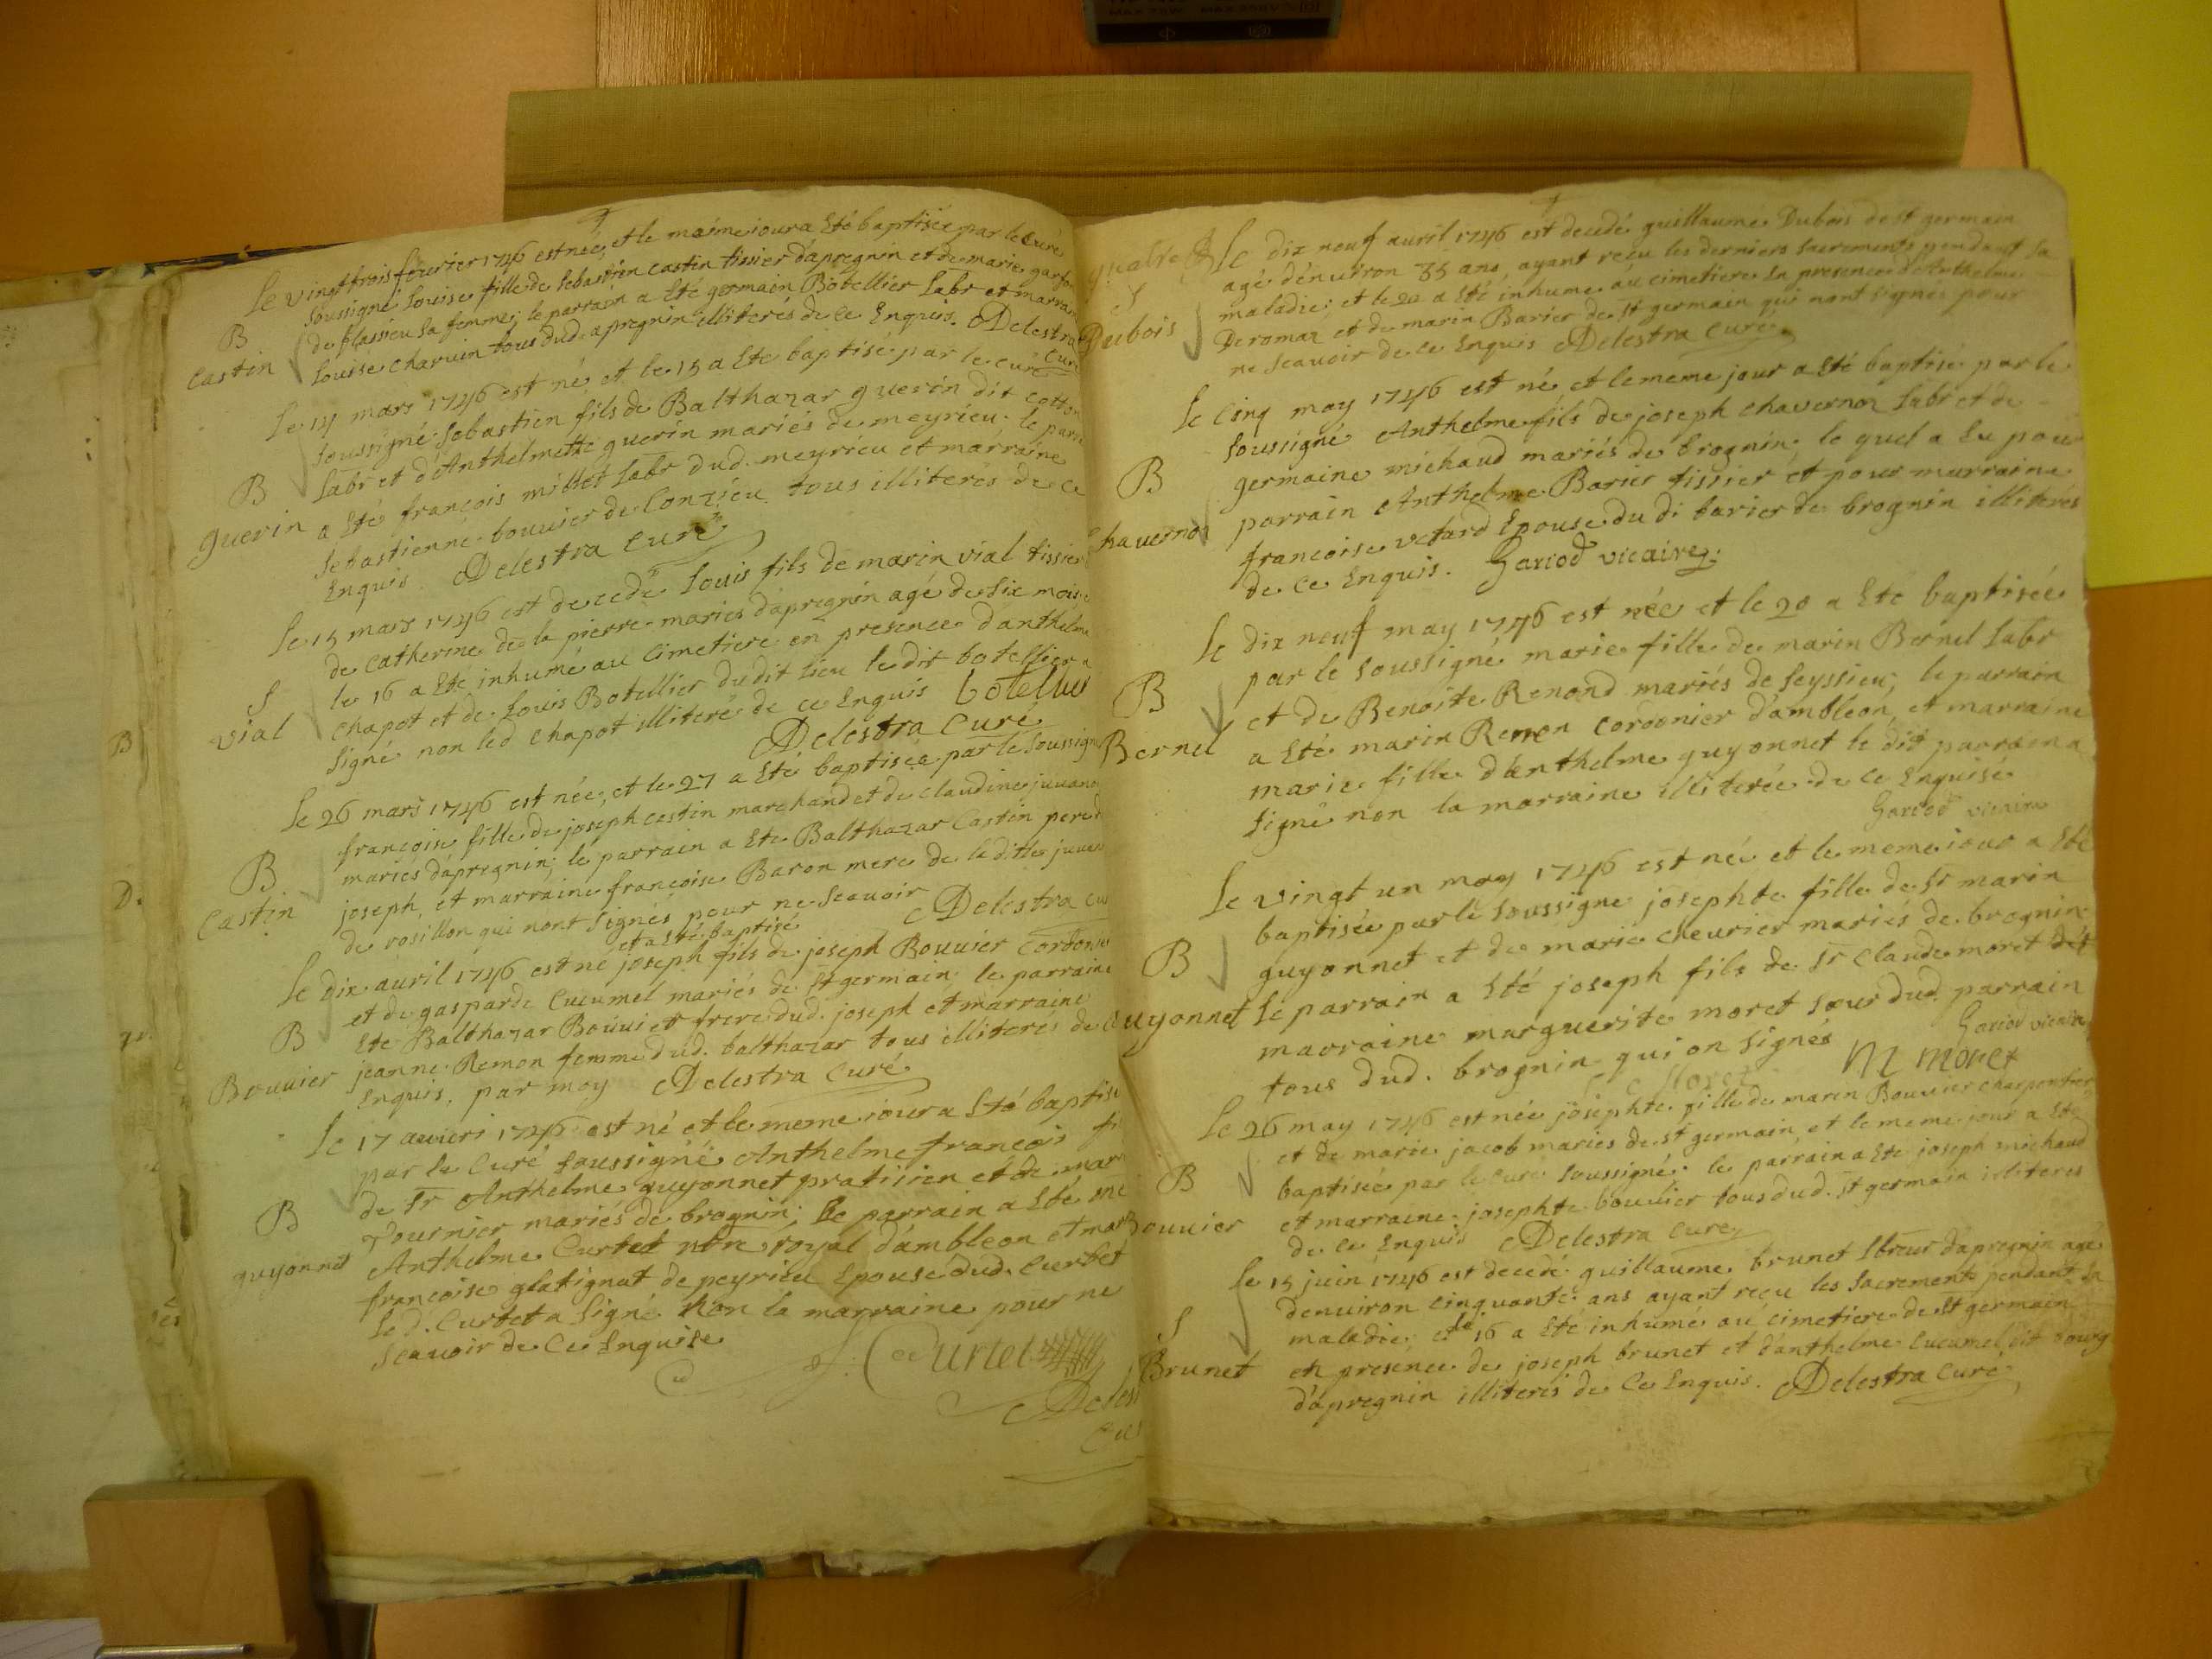 Le vingt trois fevrier 1746 est née, et le maime iour a Eté baptisée par le Curé
soussigné Louise fille de Sebastien Castin tissier d'apregnin et de marie
de flassieu sa femme; le parrain a Eté germain Botellier Labr et marraine
B
Castin
Louise Charvin tous dud. apregnin illiterés de ce Enquis. Delestra
Curé
Le 14 mars 1746 est né et le 15 a Eté baptisé par le curé
soussigné Sebastien fils de Balthazar guerin dit cotton
Labr et d'Anthelmette guerin mariés de meyrieu; le
B
guerin
a Eté françois millet Labr dud. meyrieu et marraine
Sebastienne bouvier de Conzieu tous illiterés de ce
Enquis. Delestra Curé
Le 15 mars 1746 est decedé Louis fils de marin vial tissier
de Catherine de la pierre mariés d'apregnin agé de six mois
le 16 a Eté inhumé au Cimetiere en presence d'anthelme
S
vial
Chapot et de Louis Botellier dudit lieu le dit botellier a
signé non led Chapot illiteré de ce Enquis botellier
Delestra Curé
Le 26 mars 1746 est née, et le 27 a Eté baptisée par le soussigné
françoise fille de joseph Castin marchand et de Claudine
mariés d'apregnin; le parrain a Ete Balthazar Castin pere
B
Castin
joseph, et marraine françoise Baron mere de ladite
de rosillon qui nont signés pour ne Scavoir Delestra
et a Eté baptisé
Le dix avril 1746 est né joseph fils de joseph Bouvier Cordonnier
et de gasparde Cucumel mariés de st germain; le parrain
B
Eté Balthazar Bouvier frere dud. joseph et marraine
Bouvier
jeanne Remon femme dud. balthazar tous illiterés de
Enquis. par moy Delestra Curé
Le 17 1746 est né et le meme iour a Eté baptisé
par le Curé soussigné Anthelme françois
de Sr Anthelme guyonnet praticien et de
B
guyonnet
Tournier mariés de brognin; le parrain a Eté
Anthelme Curtet royal d'ambleon et
françoise glatignat de peyrieu Epouse dud. Curtet
Led. Curtet a signé non la marraine pour ne
scavoir de Ce Enquise
Curtet
Le dix neuf avril 1746 est decedé guillaume Dubois de st germain
agé d'environ 35 ans, ayant reçu les derniers sacrements pendant sa
S
Dubois
maladie; et le 20 a Eté inhumé au cimetiere En presence d'Anthelme
Deromaz et de marin Barier de st germain qui nont signés pour
ne Scavoir de ce Enquis Delestra Curé
Le Cinq may 1746 est né et le meme jour a Eté baptisé par le
soussigné Anthelme fils de joseph Chavernoz Labr et de
B
germaine michaud mariés de brognin; le quel a Eu pour
Chavernoz
parrain Anthelme Barier tissier et pour marraine
francoise vetard Epouse du di barier de brognin illiterés
de ce Enquis. Gariod vicaire.
Le dix neuf may 1746 est née et le 20 a Eté baptisée
par le soussigné marie fille de marin Bernel Labr
B
et de Benoite Renond mariés de seyssieu; le parrain
Bernel
a Eté marin Remon Cordonier d'ambleon, et marraine
marie fille d'Anthelme guyonnet le dit parrain a
signé non la marraine illiterée de ce Enquise
Gariod vicaire
Le vingt un may 1746 est née et le meme iour a Eté
baptisée par le soussigne josephte fille de sr marin
B
guyonnet et de marie chevrier mariés de brognin
guyonnet
Le parrain a Eté joseph fils de sr Claude moret
marraine marguerite moret sœur dud. parrain
tous dud. brognin qui on signés Gariod vicaire
M moret
Le 26 may 1746 est née josephte fille de marin Bouvier charpentier
et de marie jacob mariés de st germain, et le meme jour a Eté
B
baptisée par le Curé soussigné; le parrain a Ete joseph michaud
Bouvier
et marraine josephte bouvier tous dud. st germain illiterés
de ce Enquis Delestra Curé
Le 15 juin 1746 est decedé guillaume brunet d'apregnin agé
denviron cinquante ans ayant reçu les Sacrements pendant sa
S
maladie, et le 16 a Eté inhumé au cimetiere de st germain
Brunet
en presence de joseph brunet et d'anthelme Cucumel dit
d'apregnin illiterés de Ce Enquis. Delestra Curé